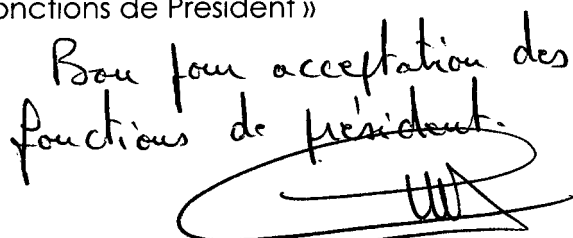 onctions de Président »
Bon pour acceptation des
fonctions de président.